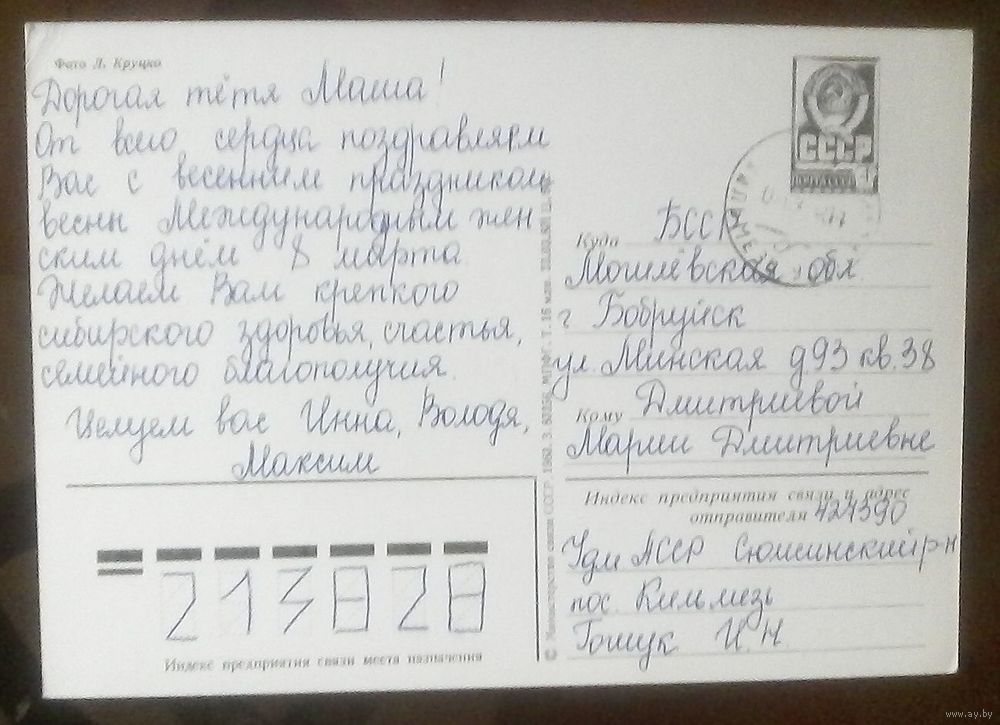 Фото Л. Круцко
Дорогая тётя Маша!
От всего сердца поздравляем
Вас с весенним праздником
весны Международным жен
ским днём 8 марта
Желаем Вам крепкого
сибирского здоровья, счастья,
семейного благополучия.
Целуем вас Инна, Володя,
Максим
СССР
Куда БССР
Могилёвская обл.
г Бобруйск
ул. Минская д93 кв. 38
Кому Дмитриевой
Марии Дмитриевне
Индекс предприятия связи и адрес
отправителя
Удм АССР Сюмсинский р-н
пос. Кильмезь
Гошук И. Н.
213828
Индекс предприятия связи места назначения
© Министерство связи СССР. 1982. З.
www.ay.by